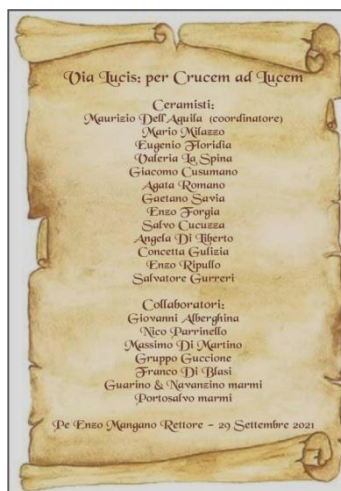 Via Lucis: per Crucem ad Lucem
Ceramisti:
Maurizio Dell'Aquila (coordinatore)
Mario Milazzo
Eugenio Floridia
Valeria La Spina
Giacomo Cusumano
Agata Romano
Gaetano Savia
Enzo Forgia
Salvo Cucuzza
Angela Di Liberto
Concetta Gulizia
Enzo Ripullo
Salvatore Gurreri
Collaboratori:
Giovanni Alberghina
Nico Parrinello
Massimo Di Martino
Gruppo Guccione
Franco Di Blasi
Guarino & Navanzino marmi
Portosalvo marmi
Pe Enzo Mangano Rettore - 29 Settembre 2021